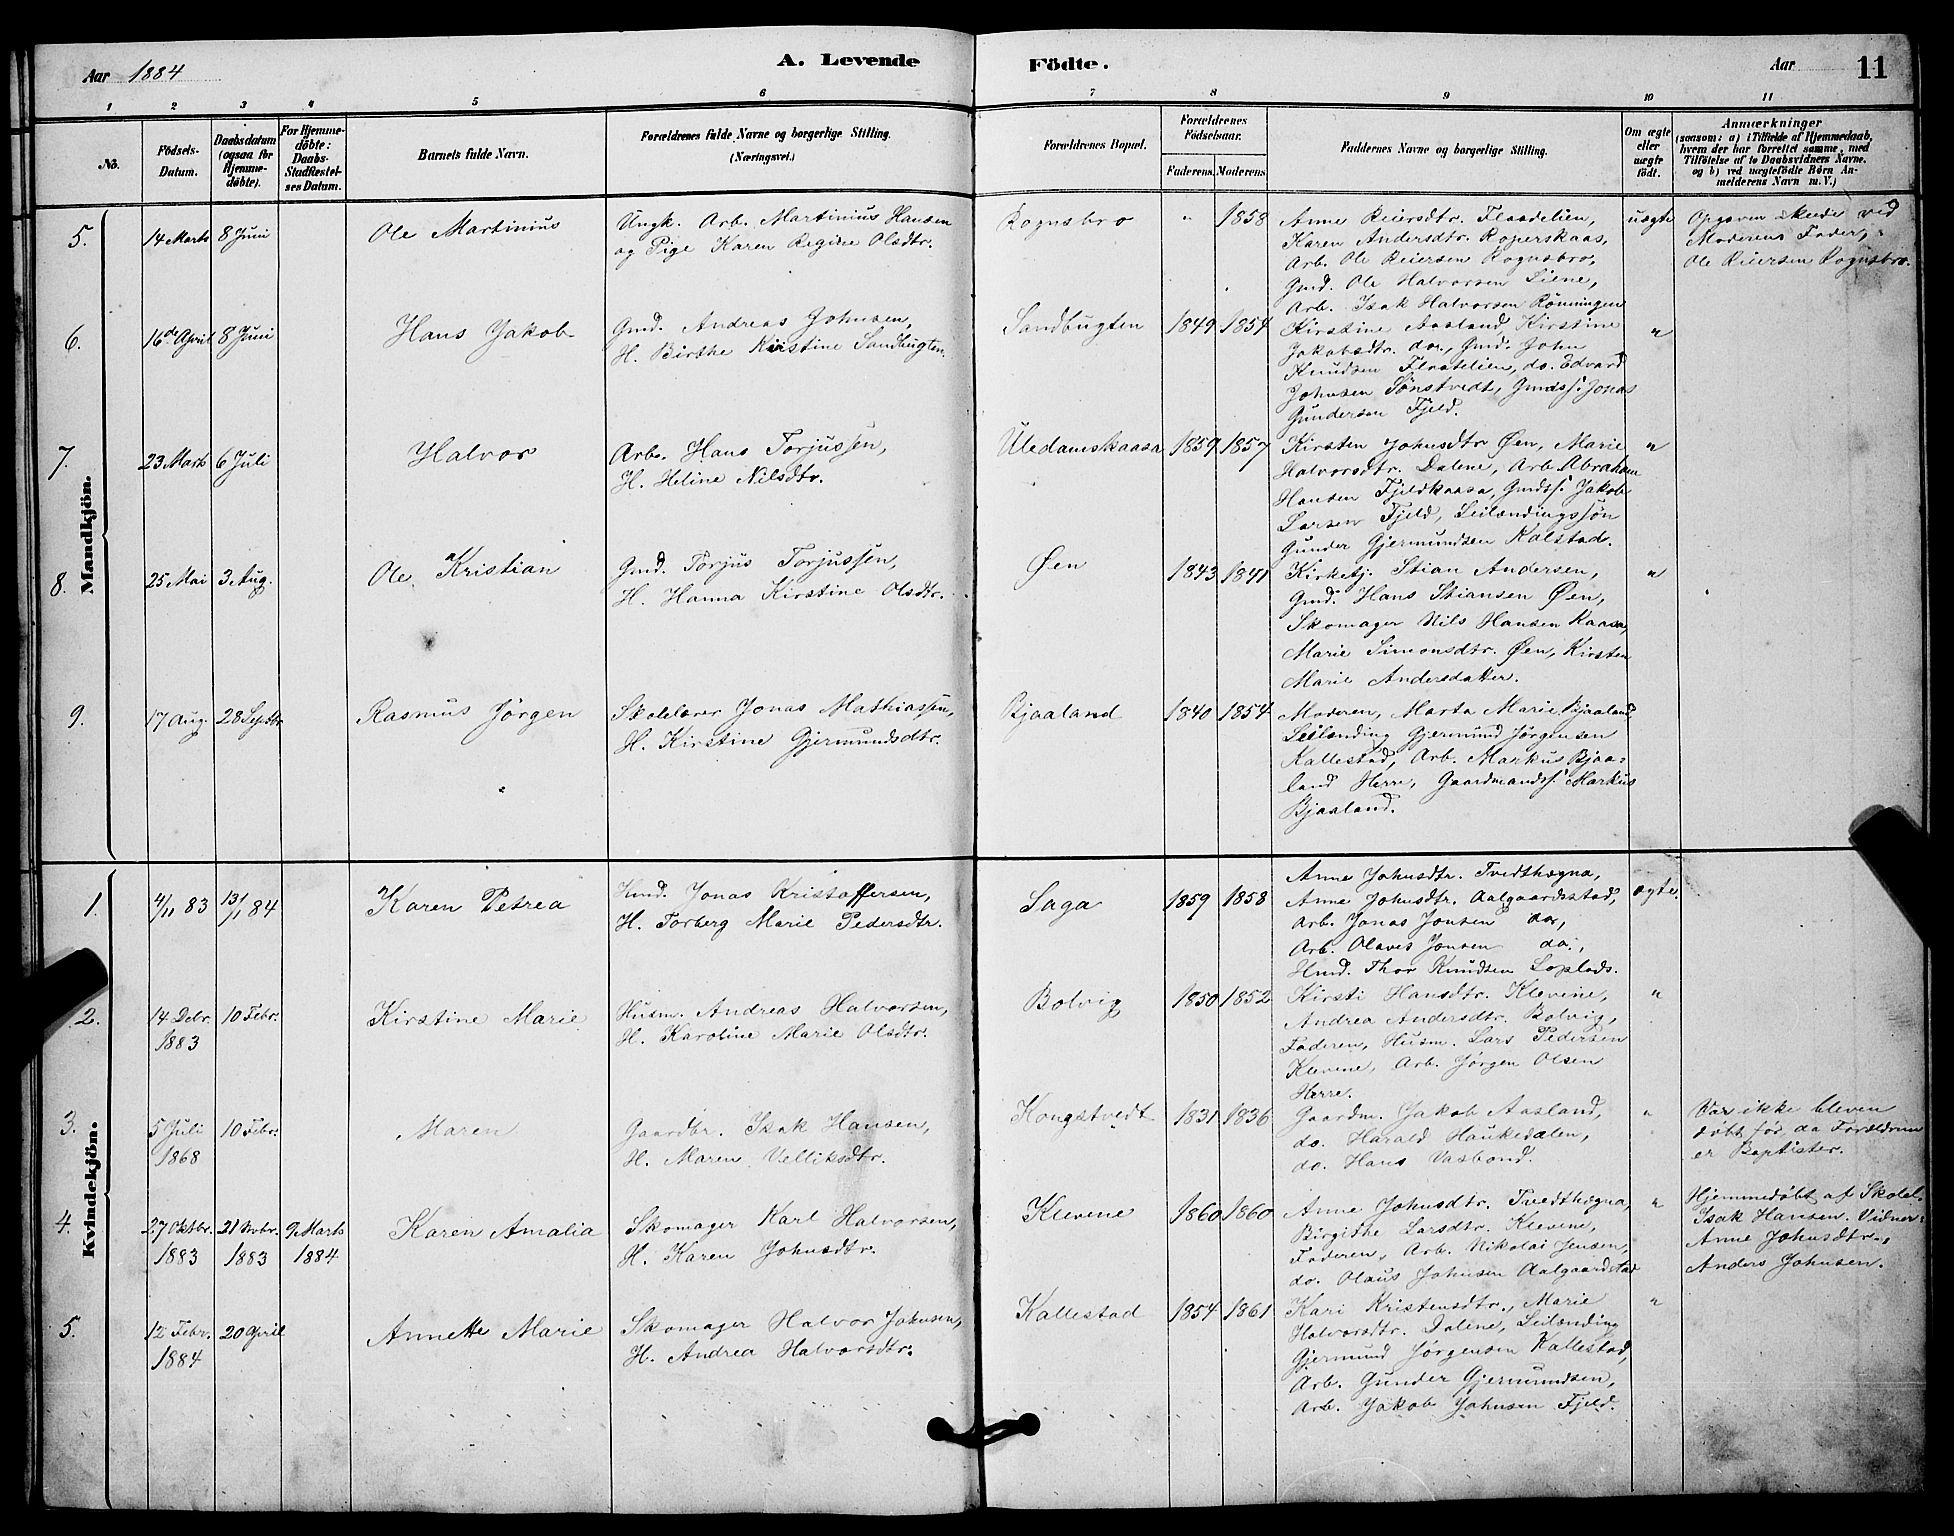 Aar 1884
A. Levende Födte.
Aar 11
1 2 3 4 5 6 7 8 9 10 11
No. Födsels-Datum. Daabsdatum (ogsaa för Hjemmedöbte). For Hjemmedöbte: Daabs-Stadfæstelses Datum. Barnets fulde Navn. Forældrenes fulde Navne og borgerlige Stilling. (Næringsvei.) Forældrenes Bopæl. Forældrenes Födselsaar. Faderens. Moderens. Faddernes Navne og borgerlige Stilling. Om ægte eller uægte født. Anmærkninger (saasom: a) i Tilfælde af Hjemmedaab, hvem der har forrettet samme, med Tilföielse af to Daabsvidners Navne, og b) ved uægtefödte Börn Anmelderens Navn m. V.)
Mandkjön.
5. 14 Marts 8 Juni Ole Martinius Ungk. Arb. Martinius Hansen
og Pige Karen Regine Olsdtr.
Rognsbro " 1858 Anne Reiersdtr. Flaadelien,
Karen Andersdtr. Roperskaas,
Arb. Ole Reiersen Rognsbro,
Gmd. Ole Halvorsen Liene,
Arb. Isak Halvorsen Rönningen
uægte Opgaven skede ved
Moderens Fader,
Ole Reiersen Rognsbro.
6. 16de April 8 Juni Hans Jakob Gmd. Andreas Johnsen,
H. Birthe Kirstine Sandbugten.
Sandbugten 1849 1854 Kirstine Aasland, Kirstine
Jakobsdtr. do., Gmd. John
Knudsen Flaatelien, do. Edvard
Johnsen Sönstvedt, Gmdss. Jonas
Gundersen Fjeld.
"
7. 23 Marts 6 Juli Halvor Arb. Hans Torjussen,
H. Heline Nilsdtr.
Uledamskaasa 1859 1857 Kirsten Johnsdtr Øen, Marie
Halvorsdtr. Dalene, Arb. Abraham
Hansen Fjeldkaasa, Gmdss. Jakob
Larsen Fjeld, Leilændingssøn
Gunder Gjermundsen Kalstad.
"
8. 25 Mai 3 Aug. Ole Kristian Gmd. Torjus Torjussen,
H. Hanna Kirstine Olsdtr.
Øen 1843 1841 Kirketj. Stian Andersen,
Gmd. Hans Stiansen Øen,
Skomager Nils Hansen Kaasa,
Marie Simonsdtr. Øen, Kirsten
Marie Andersdatter.
"
9. 17 Aug. 28 Septbr Rasmus Jörgen Skolelærer Jonas Mathiassen,
H. Kirstine Gjermundsdtr.
Bjaaland 1840 1854 Moderen, Marta Marie Bjaaland,
Leilænding Gjermund Jörgensen
Kallestad, Arb. Markus Bjaa-
land Herre, Gaardmandss. Markus
Bjaaland.
Kvindekjön.
1. 4/11 83 13/1 84 Karen Petrea Hmd. Jonas Kristoffersen,
H. Torberg Marie Pedersdtr.
Saga 1859 1858 Anne Johnsdtr. Tvedthægna,
Anne Johnsdtr. Aalgaardsstad,
Arb. Jonas Jonsen do.,
Arb. Olaves Jonsen do.,
Hmd. Thor Knudsen Loplads.
ægte.
2. 14 Debr. 1883 10 Febr. Kirstine Marie Husm. Andreas Halvorsen,
H. Karoline Marie Olsdtr.
Bolvig 1850 1852 Kirsti Hansdtr. Klevene,
Andrea Andersdtr. Bolvig,
Faderen, Husm. Lars Pedersen
Klevene, Arb. Jörgen Olsen
Herre.
"
3. 5 Juli 1868 10 Febr. Maren Gaardbr. Isak Hansen,
H. Maren Velliksdtr.
Kongstvedt 1831 1836 Gaardm. Jakob Aasland,
do. Harald Haukedalen,
do. Hans Vasbond.
" Var ikke bleven
døbt før da Forældrene
er Baptister.
4. 27 Oktbr. 1883 21 Novbr. 1883 9 Marts 1884 Karen Amalia Skomager Karl Halvorsen,
H. Karen Johnsdtr.
Klevene 1860 1860 Anne Johnsdtr. Tvedthægna,
Birgithe Larsdtr. Klevene,
Faderen, Arb. Nikolai Jensen,
do. Olaus Johnsen Aalgaardstad
" Hjemmedøbt af Skolel.
Isak Hansen. Vidner:
Anne Johnsdtr.,
Anders Johnsen.
5. 12 Febr. 1884 20 April Annette Marie Skomager Halvor Johnsen,
H. Andrea Halvorsdtr.
Kallestad 1854 1861 Kari Kristensdtr., Marie
Halvorsdtr. Dalene, Leilænding
Gjermund Jörgensen Kallestad,
Arb. Gunder Gjermundsen,
Arb. Jakob Johnsen Fjeld.
"